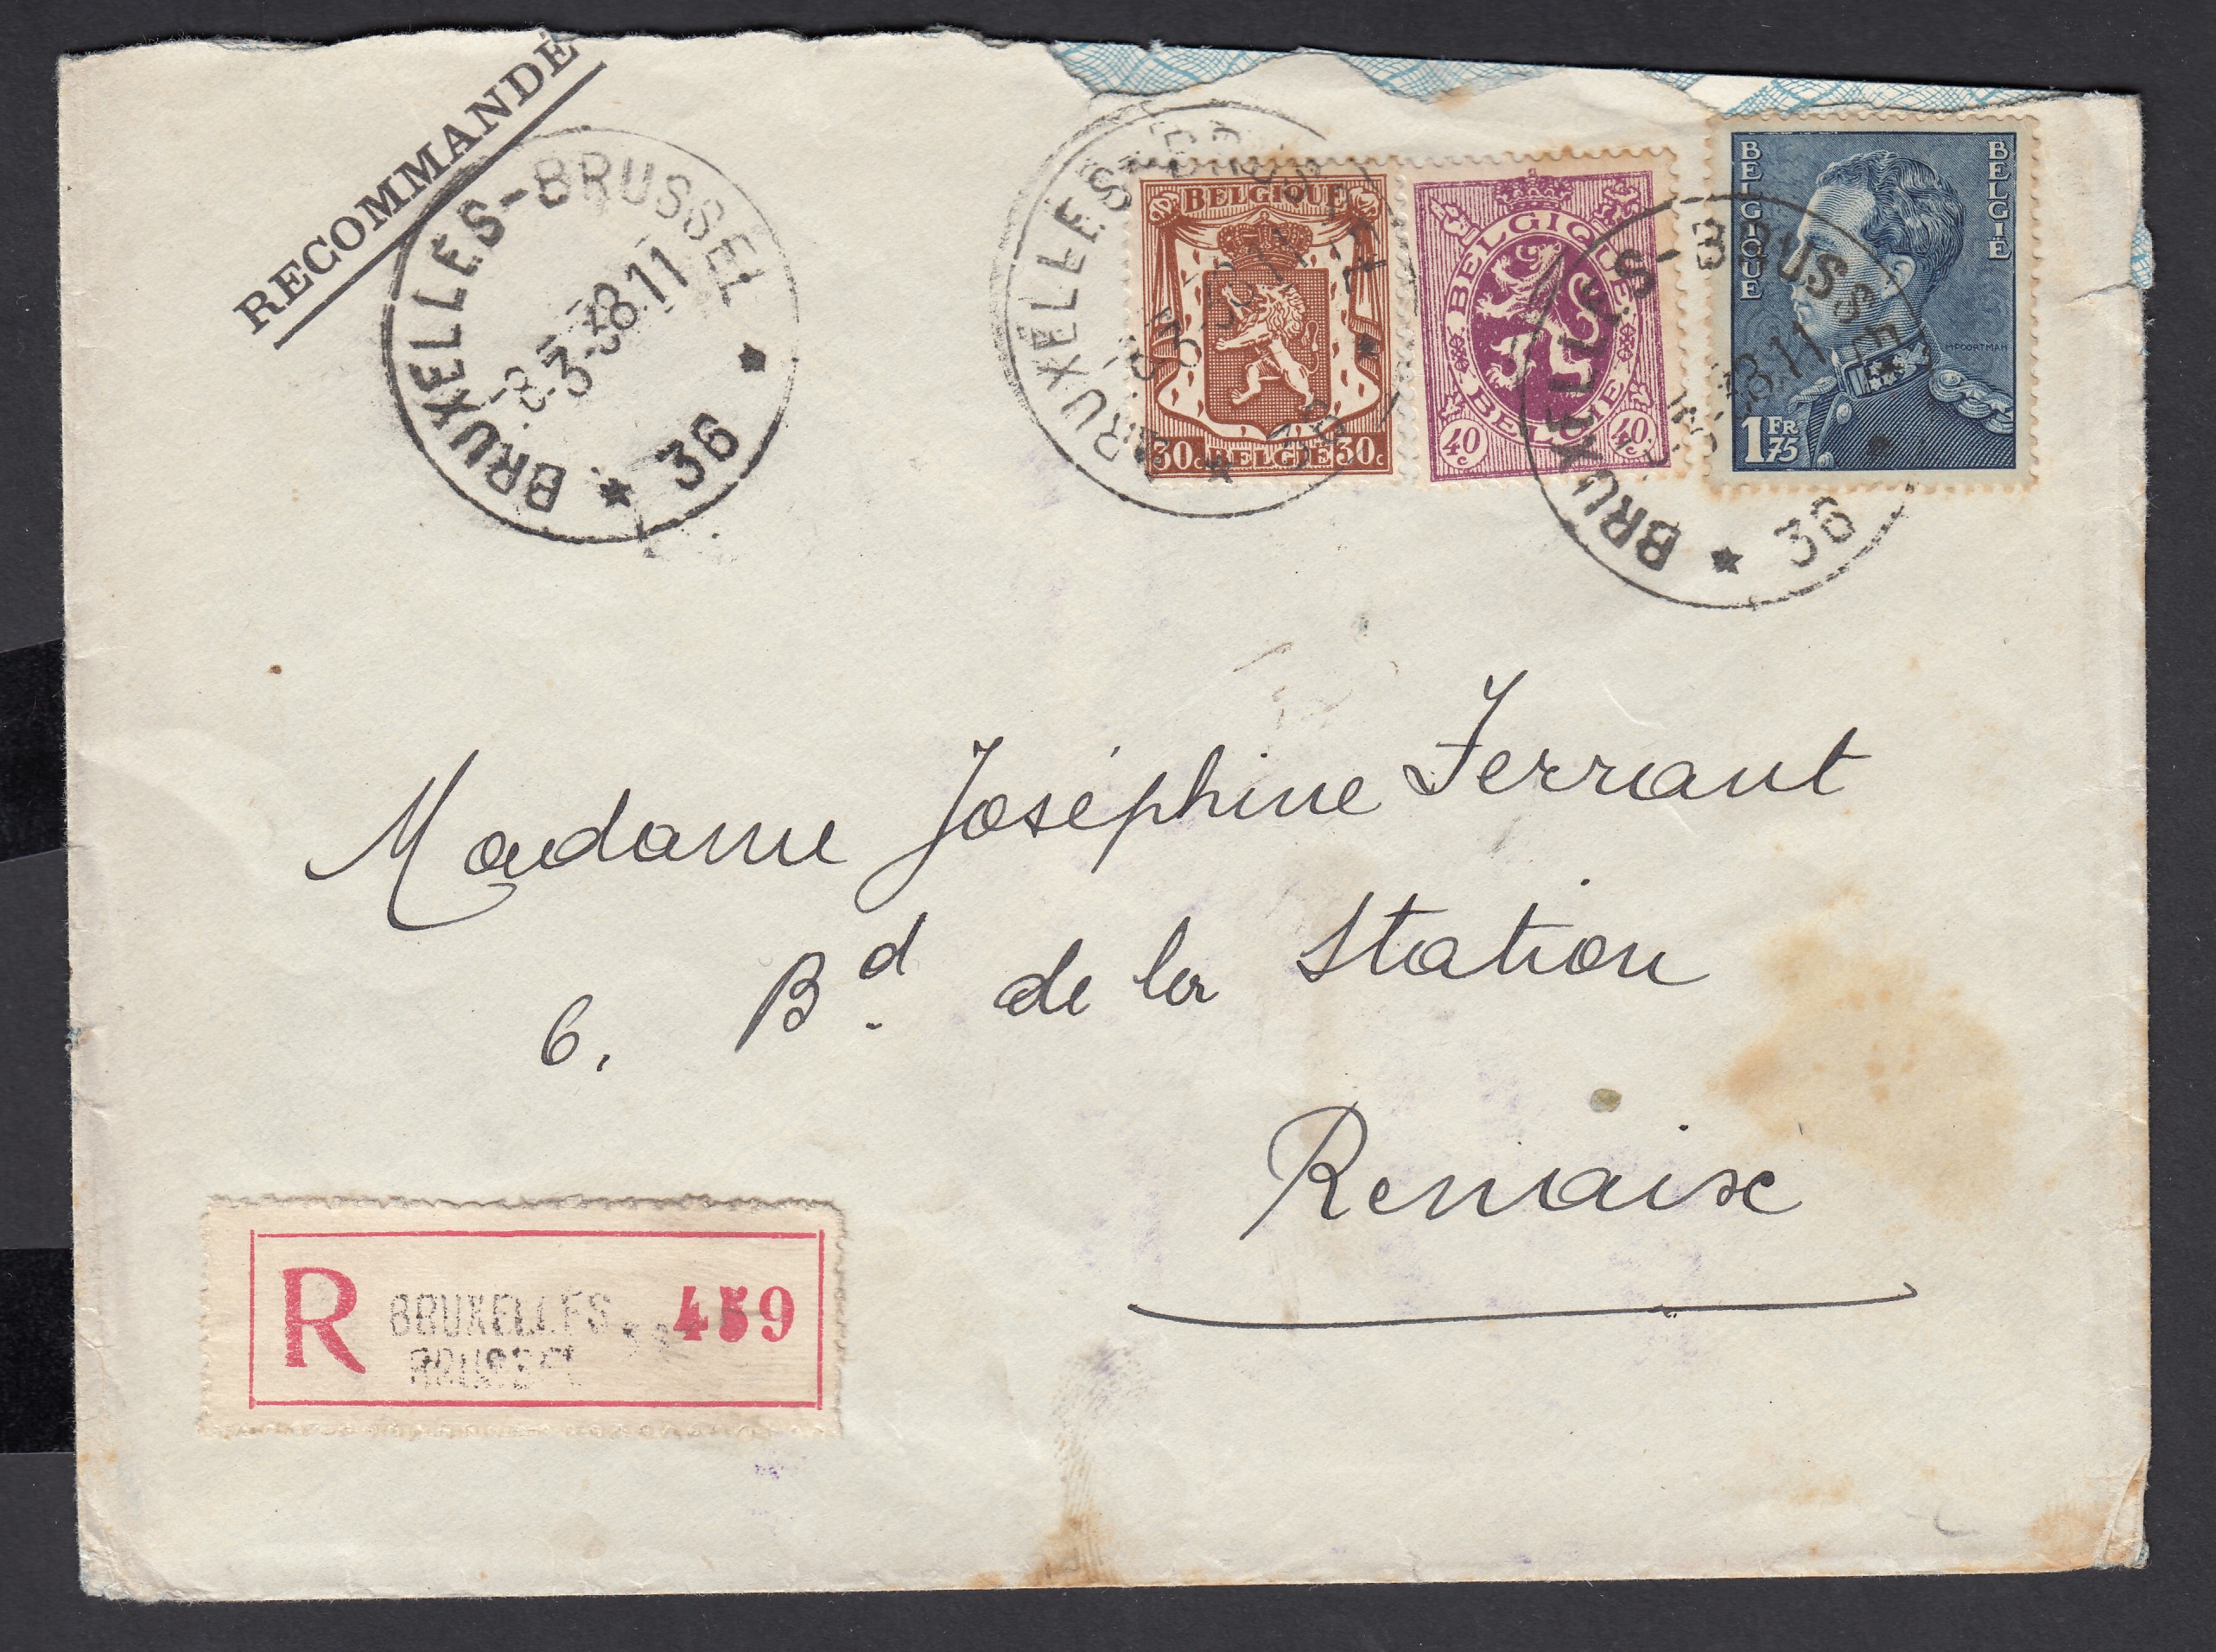 RECOMMANDÉ
BRUXELLES-BRUSSEL
-8.-3-38.11
★ 36 ★
BRUXELLES-BRUSSEL
★ 36 ★
BELGIQUE
30c BELGIË 30c
BELGIQUE
BELGIË
40c 40c
BELGIQUE
BELGIË
MPOORTMAN
1FR75
BRUXELLES-BRUSSEL
38.11
★ 36
Madame Joséphine Ferrant
6, Bd. de la Station
Renaix
R BRUXELLES 459
BRUSSEL